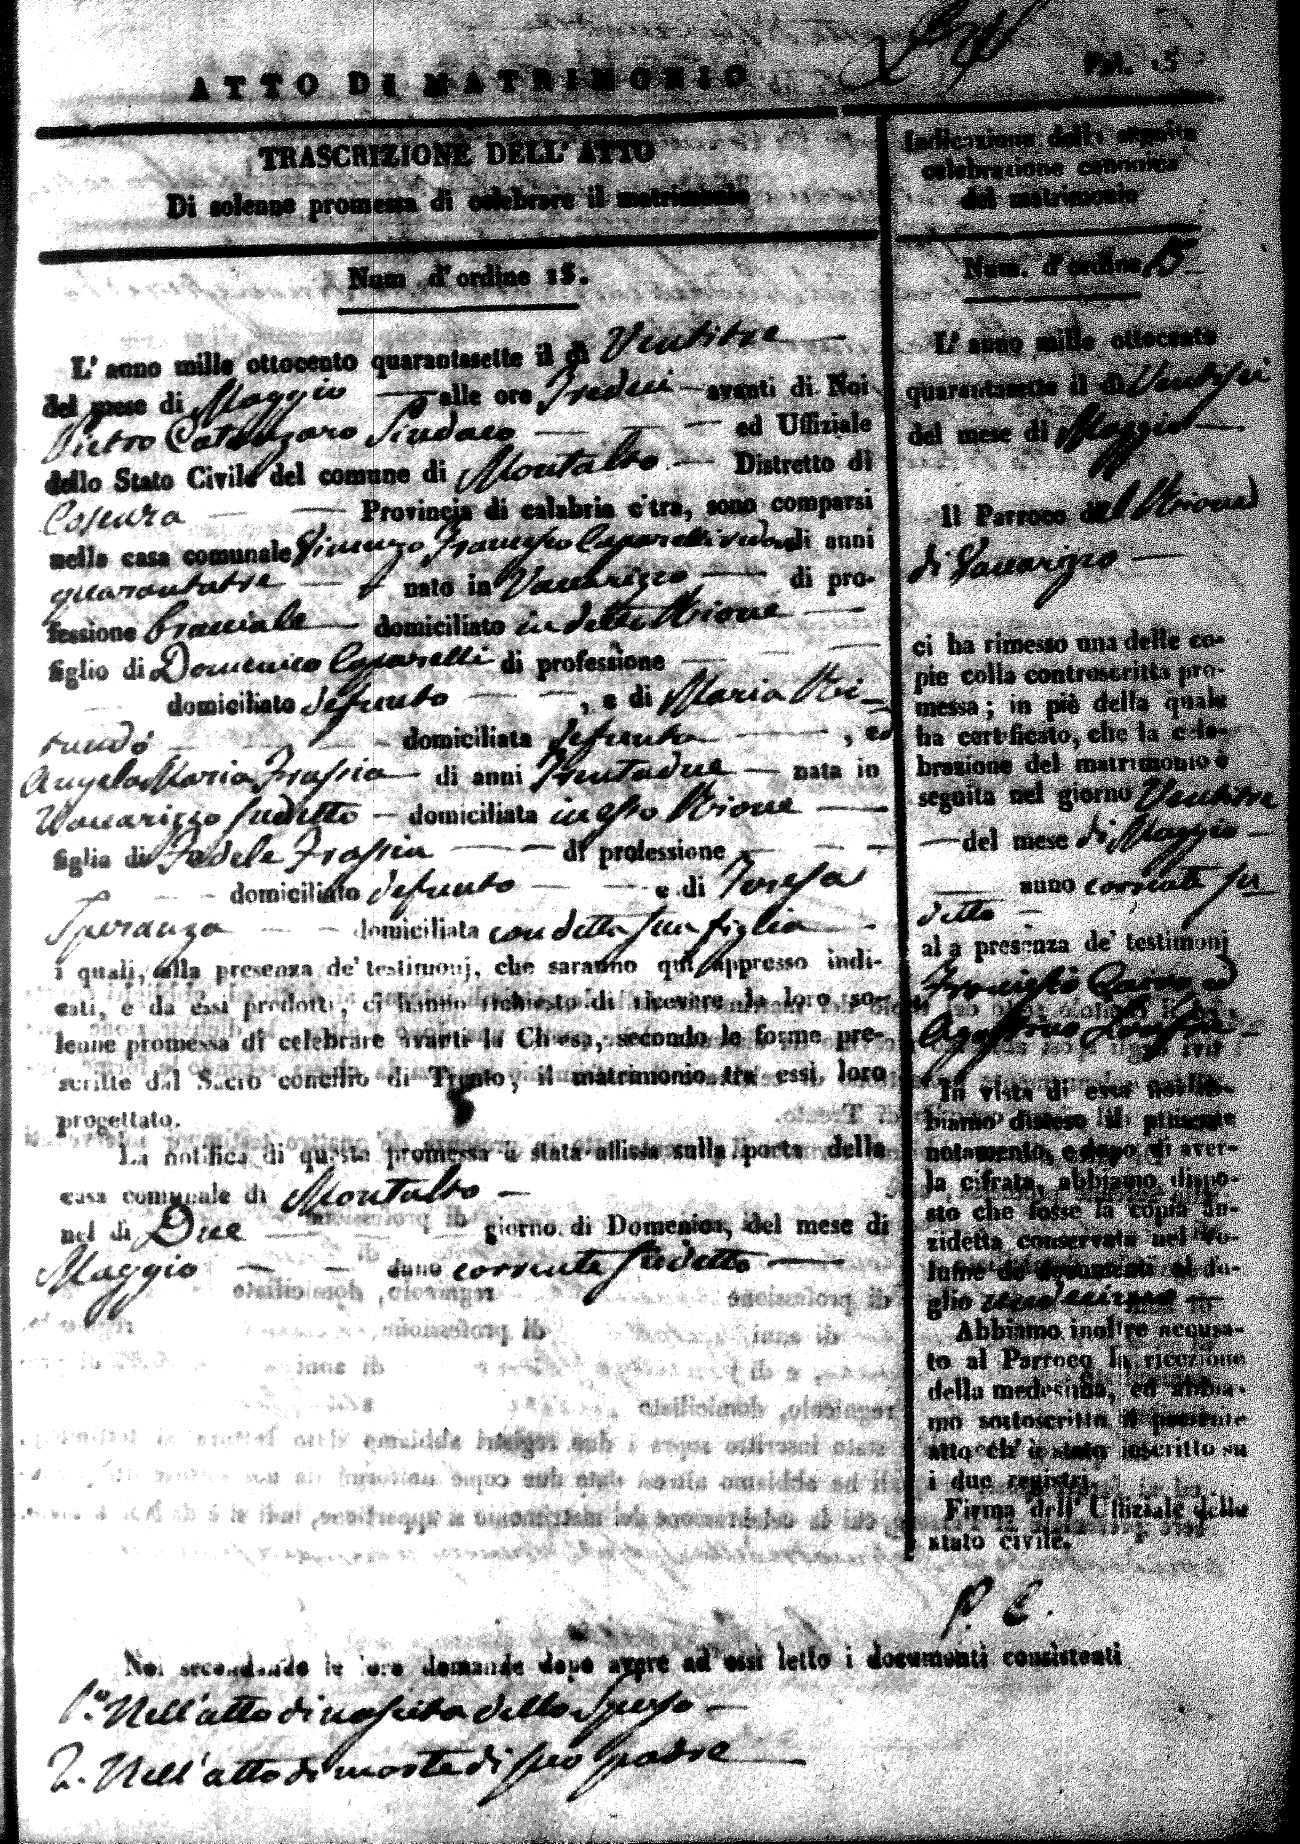 ATTO DI MATRIMONIO
Pal. 15
TRASCRIZIONE DELL' ATTO
Di solenne promessa di celebrare il matrimonio
Num d'ordine 15.
L' anno mille ottocento quarantasette il di Ventitre
del mese di Maggio alle ore Tredici avanti di Noi
Pietro Catanzaro Sindaco ed Uffiziale
dello Stato Civile del comune di Montalto Distretto di
Cosenza Provincia di calabria citra, sono comparsi
nella casa comunale Vincenzo Francesco Caparelli vedovo di anni
quarantatre nato in Vaccarizzo di pro-
fessione Bracciale domiciliato in detto Rione
figlio di Domenico Caparelli di professione
domiciliato defunto , e di Maria
domiciliata defunta , ed
Angela Maria Frassia di anni Trentadue nata in
Vaccarizzo sudetto domiciliata in esso Rione
figlia di Fedele Frassia di professione
domiciliato defunto e di Teresa
Speranza domiciliata con detta sua figlia
i quali, alla presenza de' testimonj, che saranno qui appresso indi-
cati, e da essi prodotti, ci hanno richiesto di ricevere la loro so-
lenne promessa di celebrare avanti la Chiesa, secondo le forme pre-
scritte dal Sacro concilio di Trento, il matrimonio tra essi loro
progettato.
La notifica di questa promessa è stata affissa sulla porta della
casa comunale di Montalto
nel di Due giorno di Domenica, del mese di
Maggio anno corrente sudetto
Indicazione della seguita
celebrazione canonica
del matrimonio
Num. d'ordine 15
L' anno mille ottocento
quarantasette il di Ventisei
del mese di Maggio
Il Parroco del Rione
di Vaccarizzo
ci ha rimesso una delle co-
pie colla controscritta pro-
messa; in piè della quale
ha certificato, che la cele-
brazione del matrimonio è
seguita nel giorno Ventitre
del mese di Maggio
anno corrente su
detto
alla presenza de' testimonj
Francesco ed
Agostino
In vista di essa noi ab-
biamo disteso il presente
notamento, e dopo di aver-
la cifrata, abbiamo dispo-
sto che fosse la copia an-
zidetta conservata nel vo-
lume de' documenti al fo-
glio
Abbiamo inoltre accusa-
to al Parroco la ricezione
della medesima, ed abbia-
mo sottoscritto il presente
atto ch' è stato inscritto su
i due registri.
Firma dell' Uffiziale dello
stato civile.
P. C.
Noi secondando le loro domande dopo avere ad essi letto i documenti consistenti
1.° Nell'atto di nascita dello Sposo
2. Nell'atto di morte di suo padre